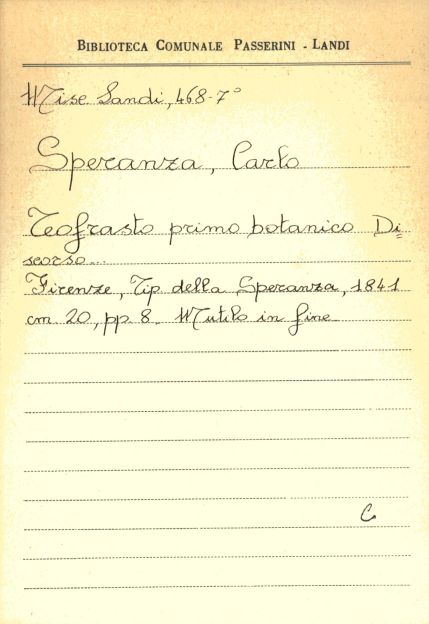 BIBLIOTECA COMUNALE PASSERINI - LANDI
Misc Landi, 468-7°
Speranza, Carlo
Teofrasto primo botanico Di=
scorso...
Firenze, Tip della Speranza, 1841
cm 20, pp 8. Mutilo in fine
C